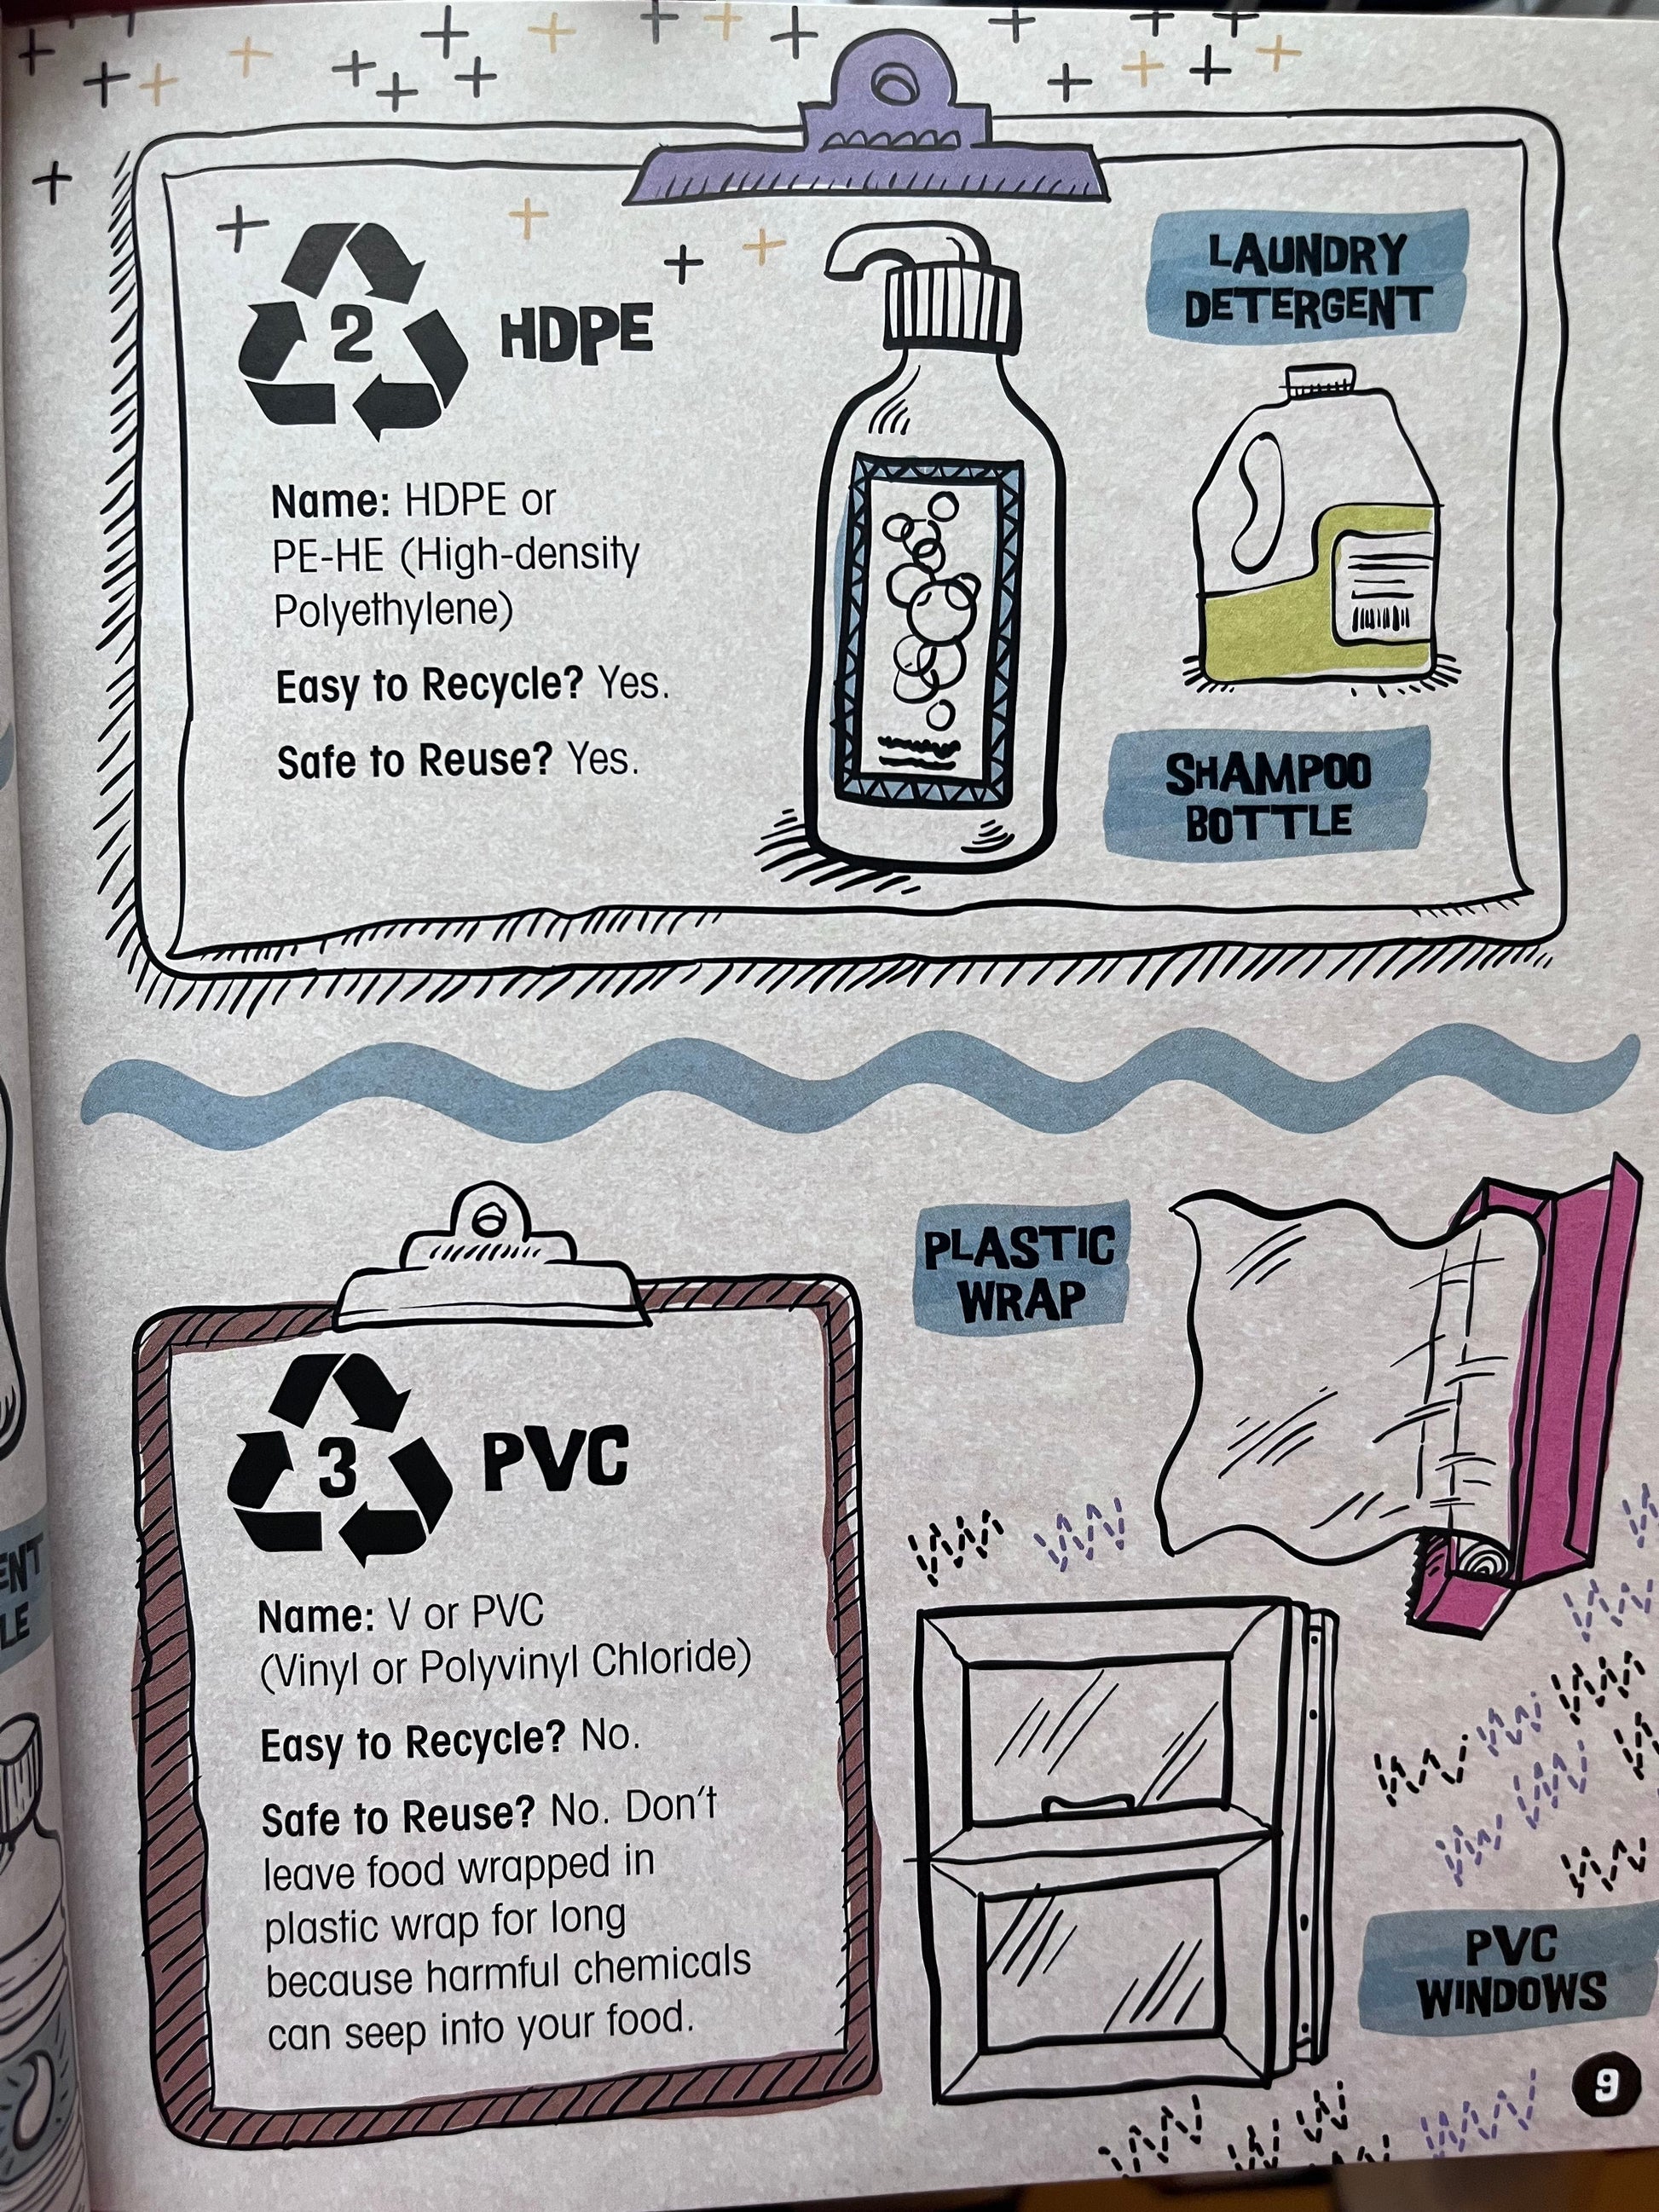 2
HDPE
Name: HDPE or
PE-HE (High-density
Polyethylene)
Easy to Recycle? Yes.
Safe to Reuse? Yes.
LAUNDRY
DETERGENT
SHAMPOO
BOTTLE
3
PVC
Name: V or PVC
(Vinyl or Polyvinyl Chloride)
Easy to Recycle? No.
Safe to Reuse? No. Don't
leave food wrapped in
plastic wrap for long
because harmful chemicals
can seep into your food.
PLASTIC
WRAP
PVC
WINDOWS
9